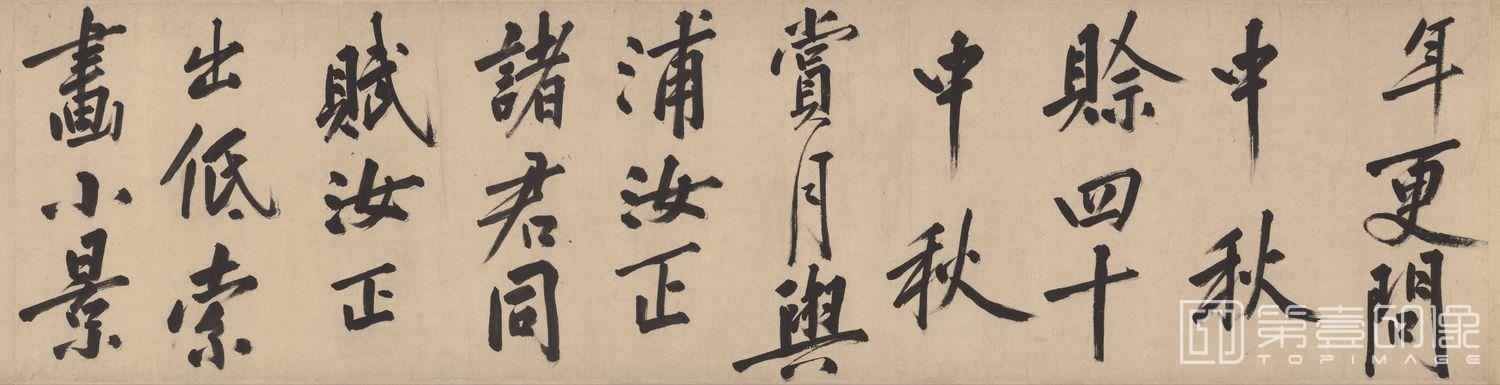 年更問
中秋
賖四十
中秋
賞月與
浦汝正
諸君同
賦汝正
出低索
畫小景
第壹印象
TOPIMAGE